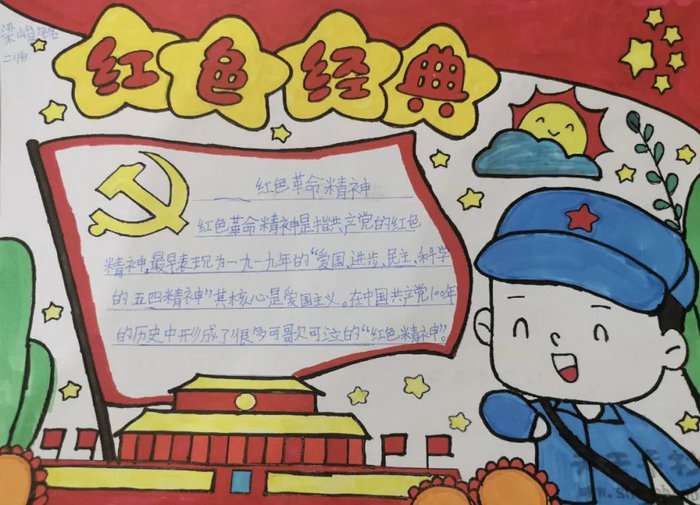 红色经典
红色革命精神
红色革命精神是指共产党的红色
精神,最早表现为一九一九年的“爱国、进步、民主、科学
的五四精神”其核心是爱国主义。在中国共产党100年
的历史中形成了很多可歌可泣的“红色精神”。